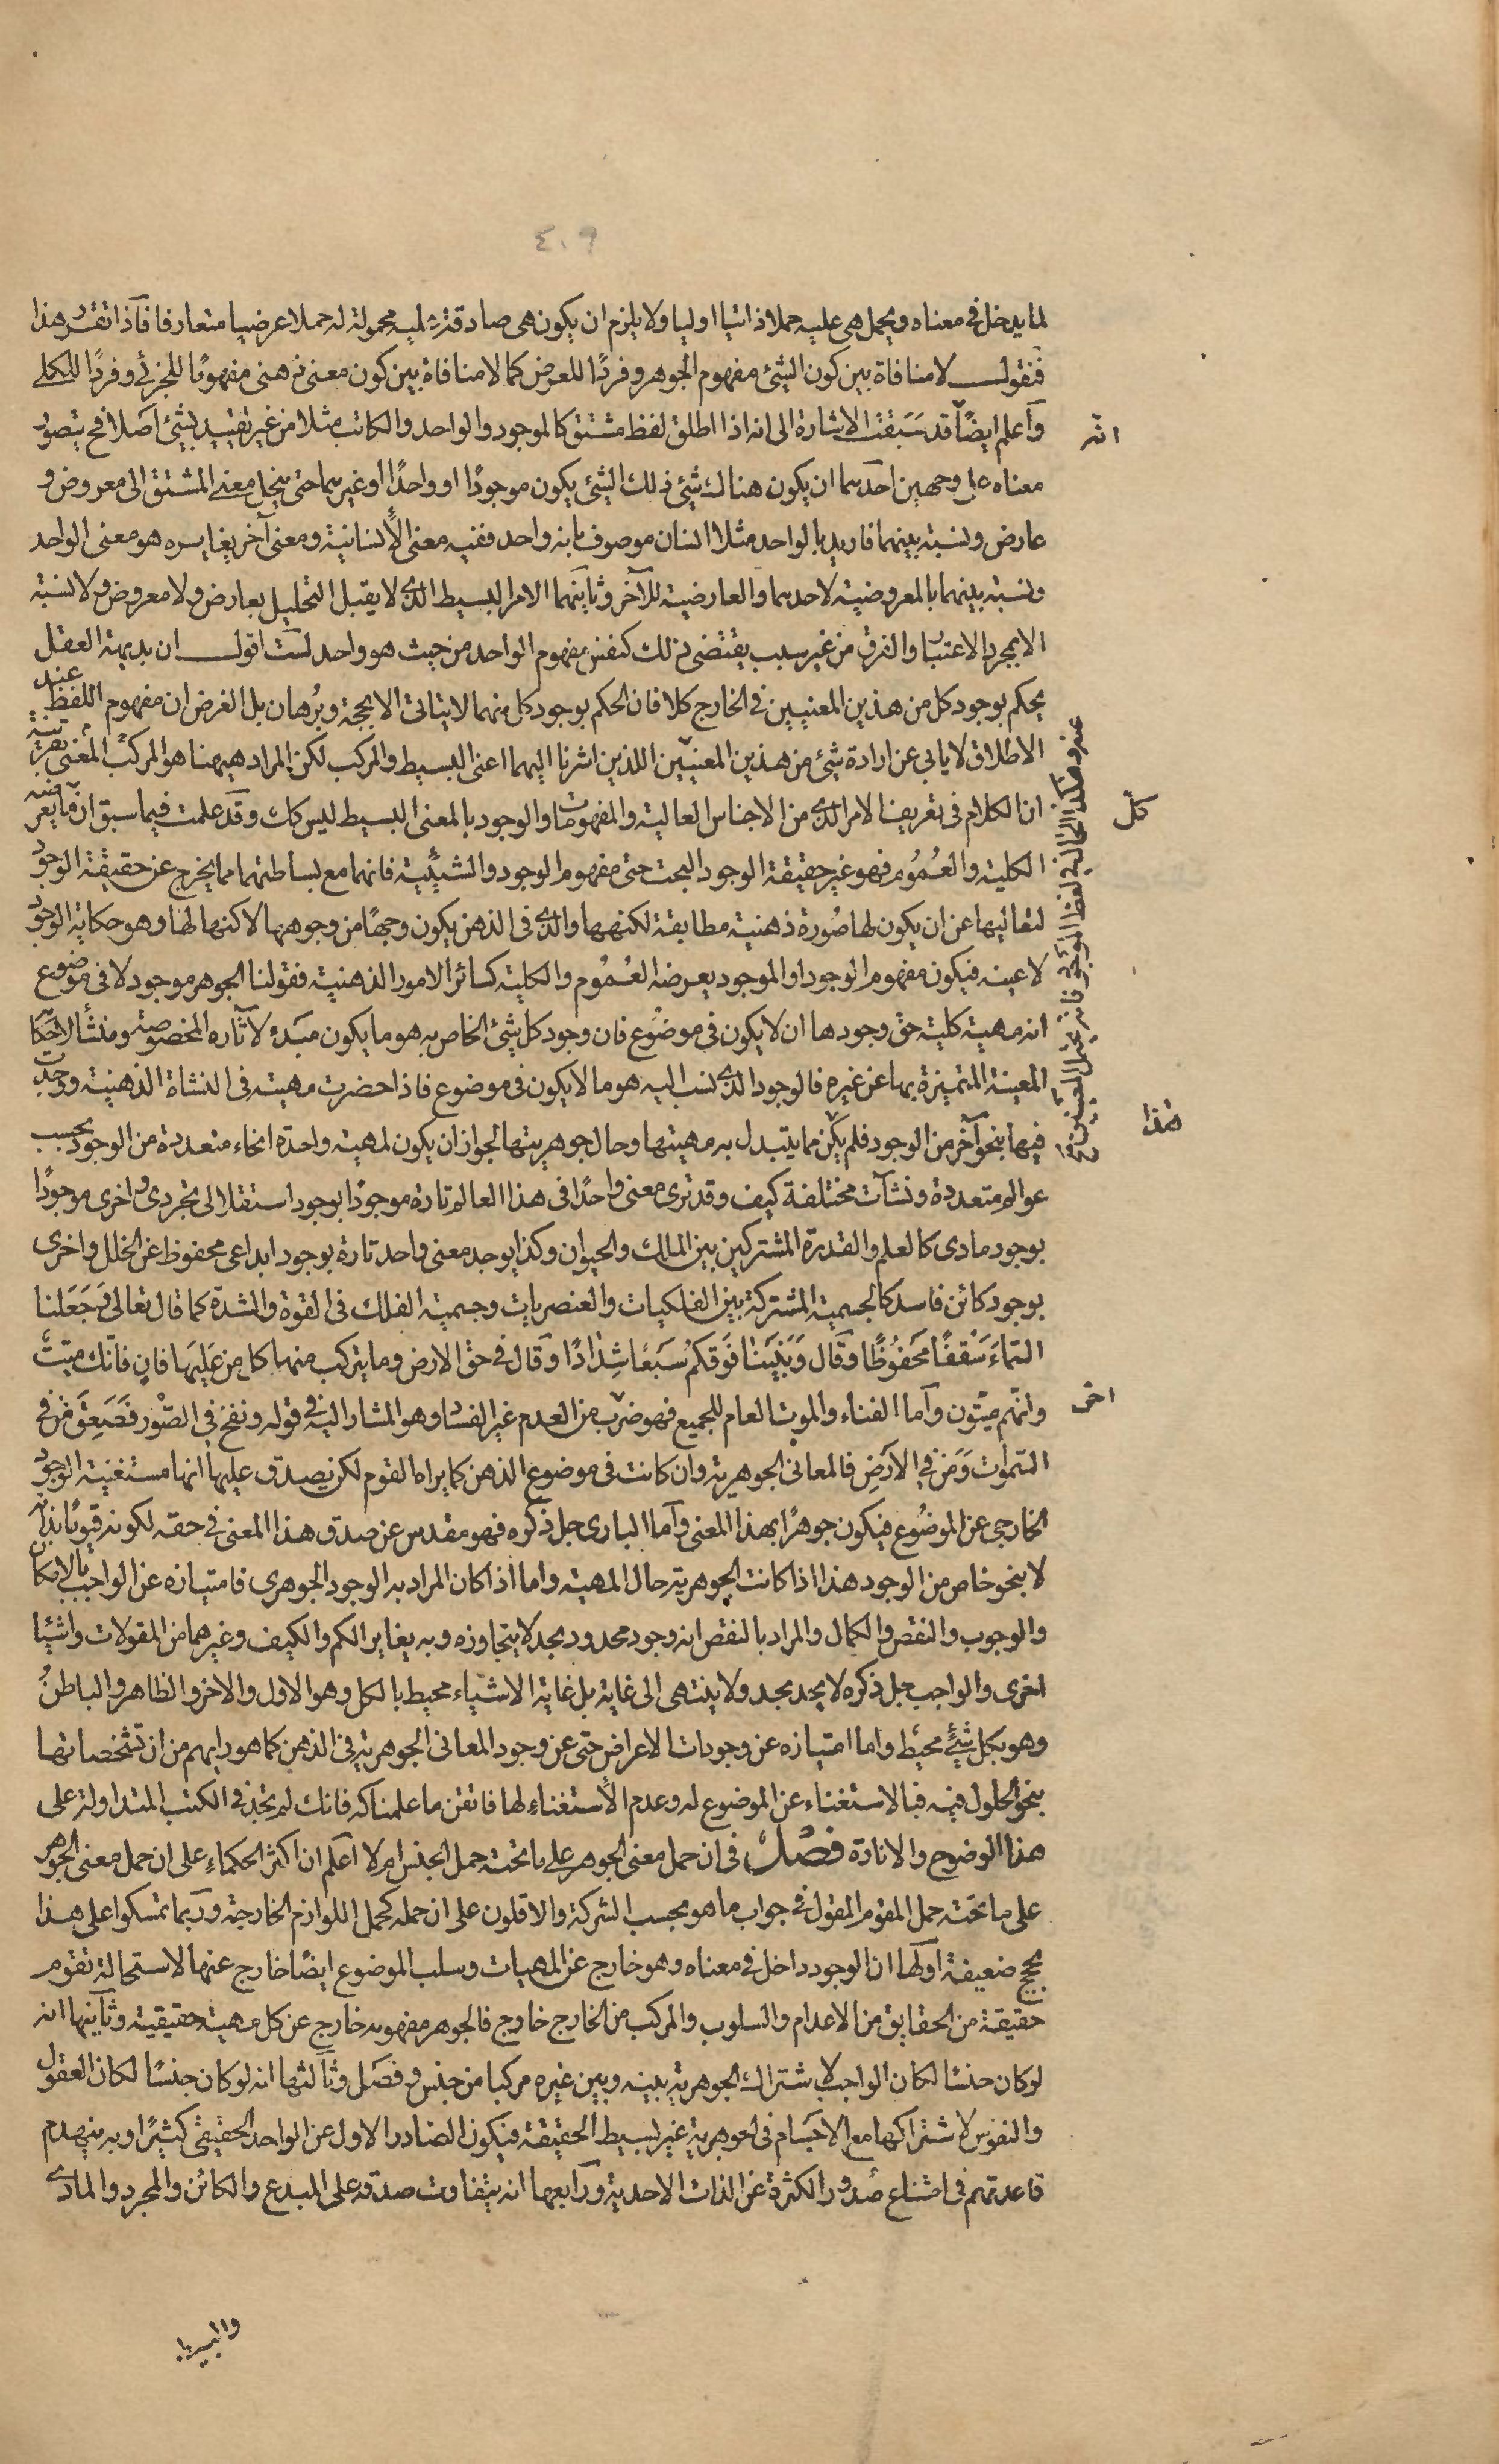 ٤٠٩
لما يدخل في معناه ويحمل هى عليه حملا ذاتيا اوليا ولا يلزم ان يكون هى صادقة عليه محمولة له حملا عرضيا متعارفا فاذا تقرر هذا
فنقول لا منافاة بين كون الشئ مفهوم الجوهر وفردًا للعرض كما لا منافاة بين كون معنى ذهنى مفهومًا للجزئى وفردًا للكلى
واعلم ايضًا قد سَبَقت الاشارة الى انه اذا اطلق لفظ مشتق كالموجود والواحد والكاتب مثلا من غير تقييد بشئ اصلا فح يتصور
معناه على وجهين احدهما ان يكون هناك شئ ذلك الشئ يكون موجودًا او واحدًا او غيرهما حتى ينحل معنى المشتق الى معروض و
عارض ونسبة بينهما فاريد بالواحد مثلا انسان موصوف بانه واحد ففيه معنى الانسانية ومعنى آخر يغايره هو معنى الواحد
ونسبة بينهما بالمعروضية لاحدهما والعارضية للآخر وثانيهما الامر البسيط الذى لا يقبل التحليل بعارض ولا معروض ولا نسبة
الا بمجرد الاعتبار والفرق من غير سبب يقتضى ذلك كنفس مفهوم الواحد من حيث هو واحد لست اقول ان بديهة العقل
يحكم بوجود كل من هذين المعنيين في الخارج كلا فان الحكم بوجود كل منهما لا يتاتى الا بحجة وبُرهان بل الغرض ان مفهوم اللفظ عند
الاطلاق لا يابى عن ارادة شئ من هذين المعنيين اللذين اشرنا اليهما اعنى البسيط والمركب لكن المراد هيهنا هو المركب المعنى بقرينة
ان الكلام فى تعريف الامر الذى من الاجناس العالية والمفهومات والوجود بالمعنى البسيط ليس كك وقد علمت فيما سبق ان ما يعرضه
الكلية والعُمُوم فهو غير حقيقة الوجود البحت حتى مفهوم الوجود والشيئية فانهما مع بساطتهما مما يخرج عن حقيقة الوجود
لتعاليها عن ان يكون لها صُورة ذهنية مطابقة لكنهها والذى فى الذهن يكون وجهًا من وجوهها لا كنها لها وهو حكاية الوجود
لا عينه فيكون مفهوم الوجود او الموجود يعرضه العُمُوم والكلية كسائر الامور الذهنية فقولنا الجوهر موجود لا فى موضوع
انه مهية كلية حق وجودها ان لا يكون فى موضُوع فان وجود كل شئ الخاص به هو ما يكون مبدء لآثاره المخصوصة ومنشأ لاحكامه
المعينة المتميزة بها عن غيره فالوجود الذى نسب اليه هو ما لا يكون فى موضوع فاذا حضرت مهيته فى النشاة الذهنية ووجدت
فيها بنحو آخر من الوجود فلم يكن مما يتبدل به مهيتها وحال جوهريتها لجواز ان يكون لمهية واحدة انحاء متعددة من الوجود بحسب
عوالم متعددة ونشآت مختلفة كيف وقد ترى معنى واحدًا فى هذا العالم تارة موجودًا بوجود استقلالى مجردى واخرى موجودًا
بوجود مادى كالعلم والقدرة المشتركين بين الملك والحيوان وكذا يوجد معنى واحد تارة بوجود ابداعى محفوظ عن الخلل واخرى
بوجود كائن فاسد كالجسمية المشتركة بين الفلكيات والعنصريات وجسمية الفلك فى القوة والشدة كما قال تعالى وَجَعَلنا
السّماءَ سَقفًا مَحفُوظًا وقال وَبَنَينا فَوقَكُم سَبعًا شِدٰادًا وقال فى حق الارض وما يتركب منها كل من عَلَيهَا فانٍ فانّك ميّتٌ
وانّهم ميّتون وأما الفناء والموت العام للجميع فهو ضرب من العدم غير الفساد وهو المشار اليه فى قوله ونفخ فى الصّور فصَعِقَ مَن فى
السّمٰوات وَمَن في الأرضِ فالمعانى الجوهرية وان كانت فى موضوع الذهن كما يراه القوم لكن يصدق عليها انها مستغنية الوجود
الخارجى عن الموضُوع فيكون جوهرًا بهذا المعنى وأما البارى جل ذكره فهو مقدس عن صدق هذا المعنى فى حقه لكونه قيومًا بذاته
لا بنحو خاص من الوجود هذا اذا كانت الجوهرية حال المهية واما اذا كان المراد به الوجود الجوهرى فامتيازه عن الواجب بالامكان
والوجوب والنقص والكمال والمراد بالنقص انه وجود محدود بحد لا يتجاوزه وبه يغاير الكم والكيف وغيرهما من المقولات واشياء
اخرى والواجب جل ذكره لا يحد بحد ولا ينتهى الى غاية بل غاية الاشياء محيط بالكل وهو الاول والاخر والظاهر والباطنُ
وهو بكل شئٍ محيط واما امتيازه عن وجودات الاعراض حتى عن وجود المعانى الجوهرية فى الذهن كما هو رايهم من ان تشخصاتها
بنحو الحلول فيه فبالاستغناء عن الموضوع له وعدم الأستغناء لها فاتقن ما علمناكه فانك لم تجد فى الكتب المتداولة على
هذا الوضوح والانارة فصل فى ان حمل معنى الجوهر على ما تحته حمل الجنس ام لا اعلم ان اكثر الحكماء على ان حمل معنى الجوهر
على ما تحته حمل المقوم المقول فى جواب ما هو بحسب الشركة والاقلون على ان حمله كحمل اللوازم الخارجة وربما تمسكوا على هذا
بحجج ضعيفة اولها ان الوجود داخل فى معناه وهو خارج عن المهيات وسلب الموضوع ايضًا خارج عنها لاستحالة تقوم
حقيقة من الحقايق من الاعدام والسلوب والمركب من الخارج خارج فالجوهر مفهومه خارج عن كل مهية حقيقية وثانيها انه
لو كان جنسًا لكان الواجب لاشتراك الجوهرية بينه وبين غيره مركبا من جنس وفصل وثالثها انه لو كان جنسًا لكان العقول
والنفوس لاشتراكها مع الاجسام فى الجوهرية غير بسيط الحقيقة فيكون الصادر الاول عن الواحد الحقيقى كثيرًا وبه ينهدم
قاعدتهم فى امتناع صُدور الكثرة عن الذات الاحدية ورابعها انه يتفاوت صدقه على المبدع والكائن والمجرد والمادى
انه
كل
هذا
والبسيط